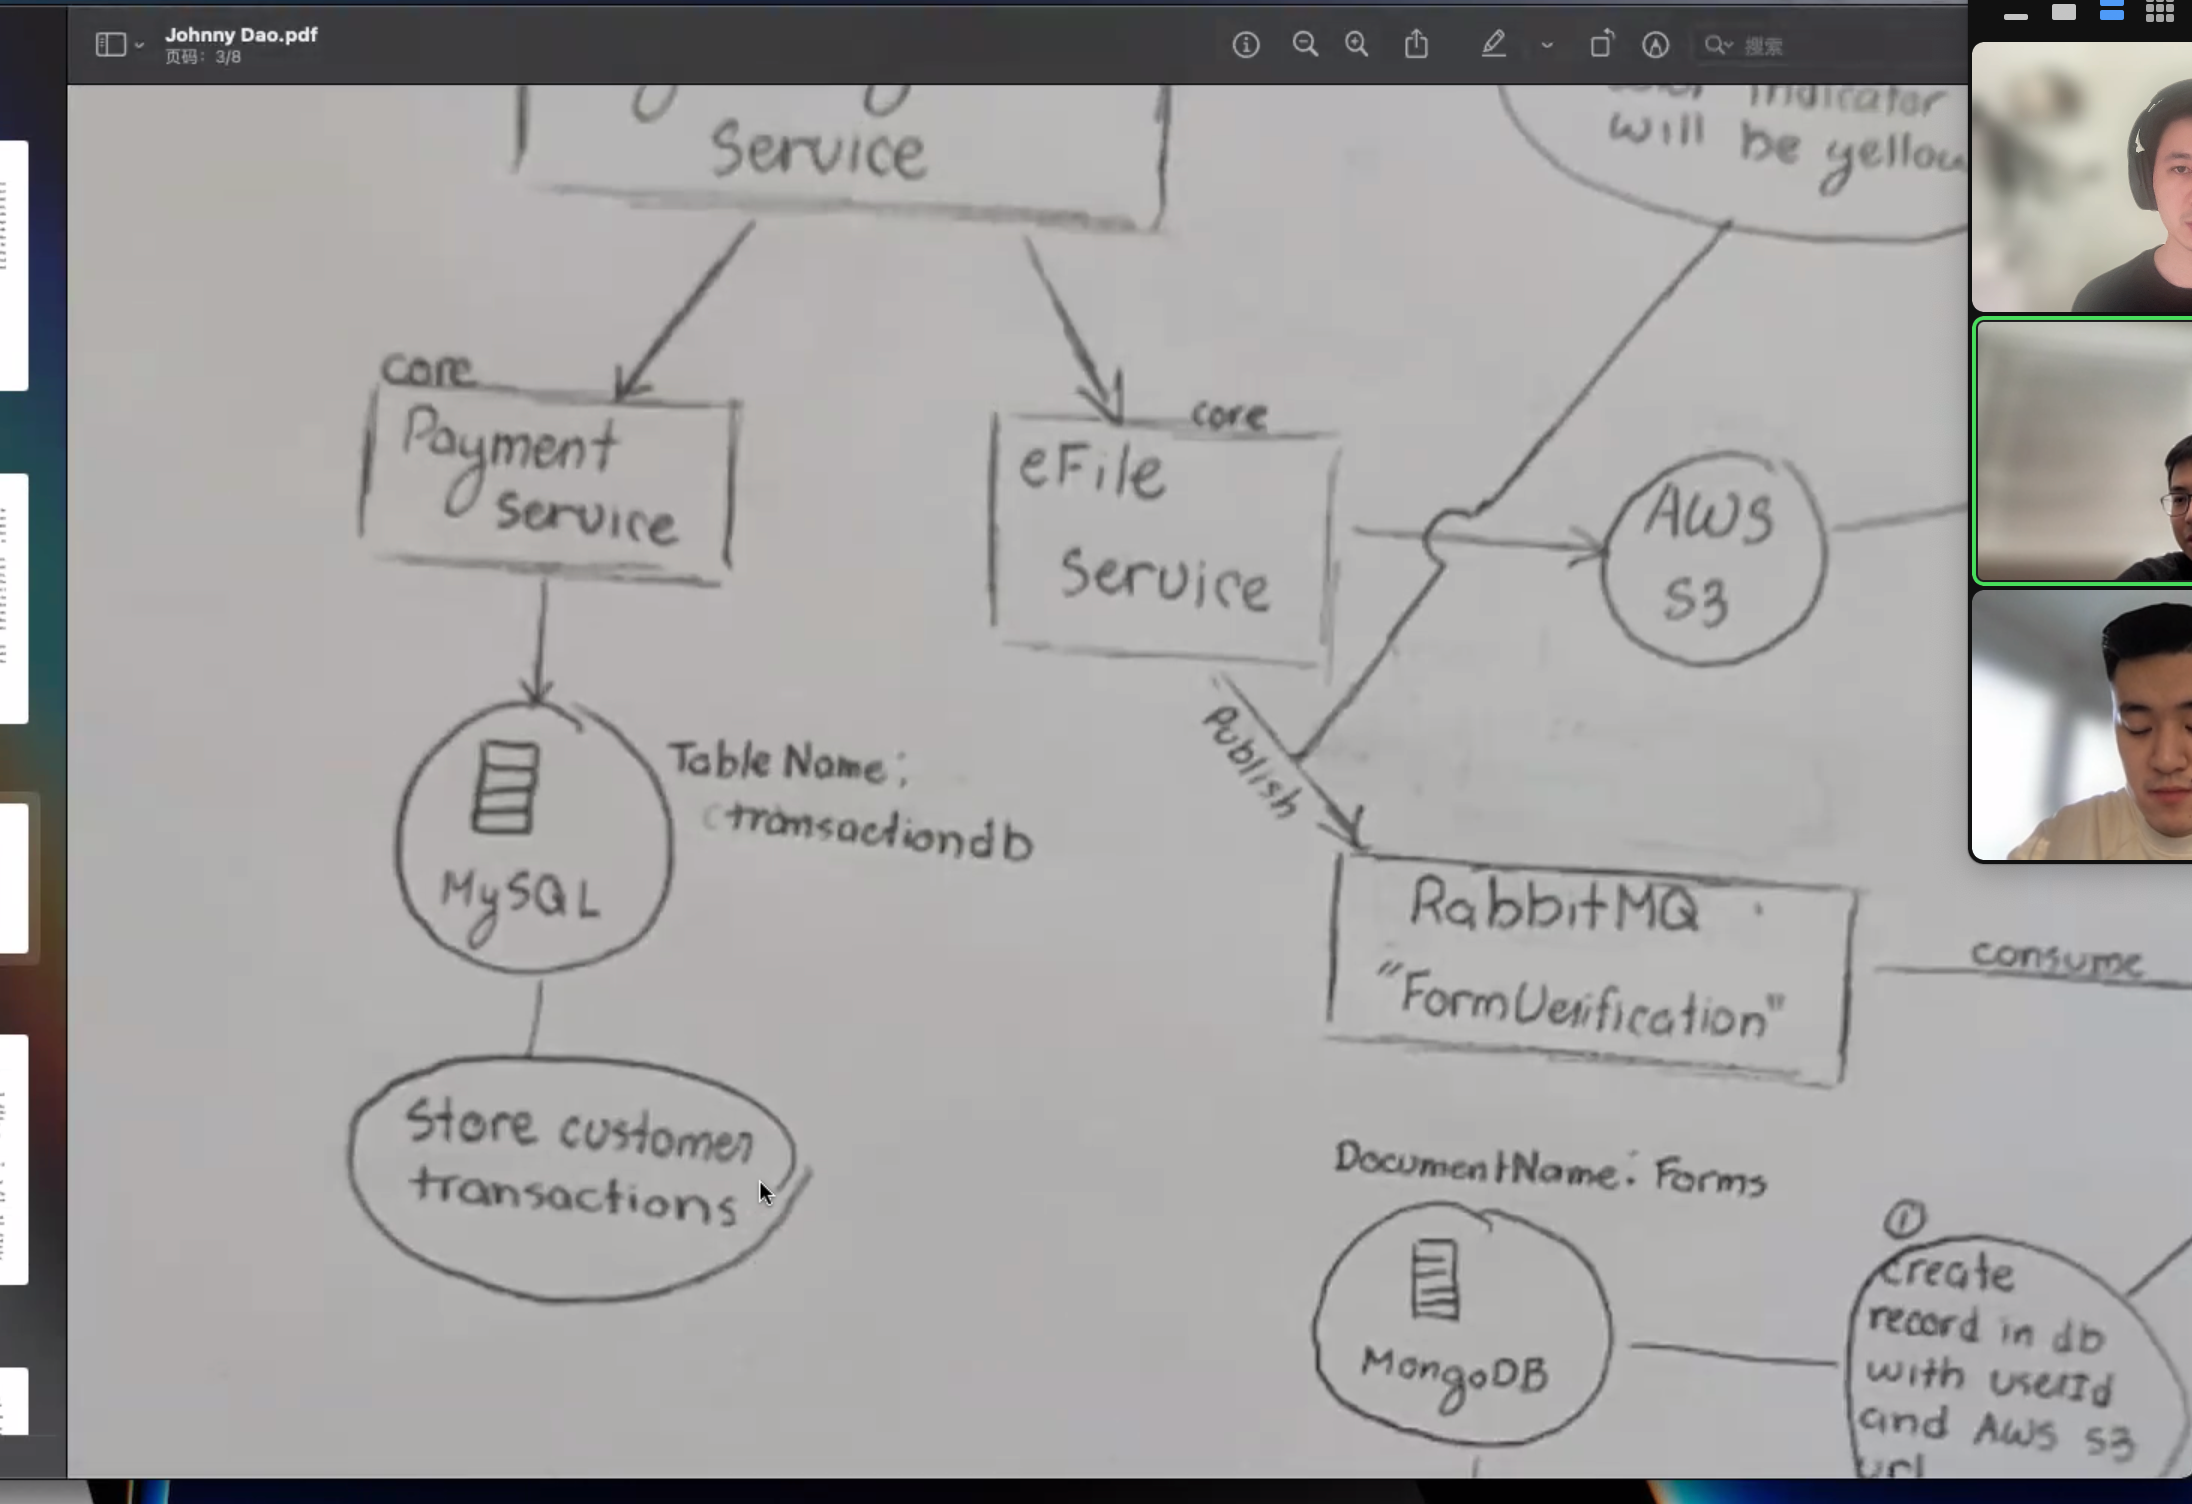 Johnny Dao.pdf
页码：3/8
搜索
Service
indicator
will be yellow
core
Payment
service
core
eFile
service
AWS
S3
Publish
Table Name:
transactiondb
MySQL
RabbitMQ
"FormVerification"
consume
Store customer
transactions
DocumentName: Forms
MongoDB
①
create
record in db
with userId
and AWS S3
url